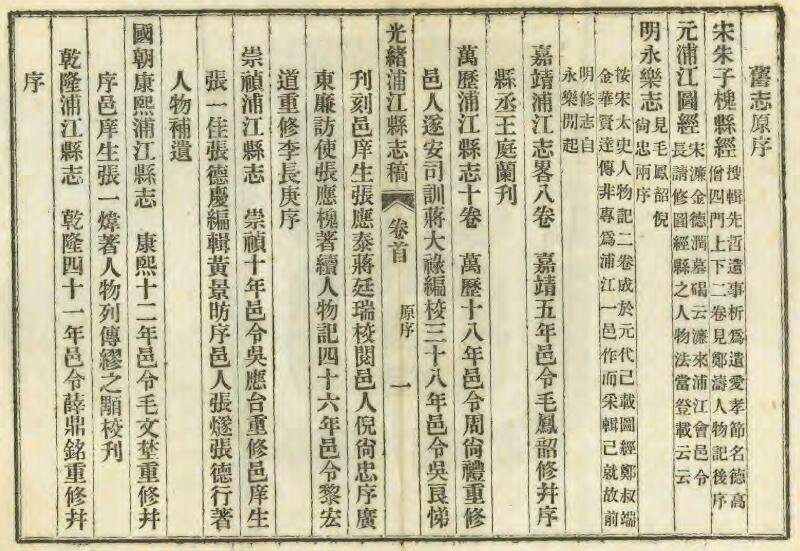 舊志原序
宋朱子槐縣經 搜輯先哲遺事析爲遺愛孝節名德高
僧四門上下二卷見鄭濤人物記後序
元浦江圖經 宋濂金德潤墓碣云濂來浦江會邑令
長請修圖經縣之人物法當登載云云
明永樂志 見毛鳳韶倪
尙忠兩序
按宋太史人物記二卷成於元代已載圖經鄭叔端
金華賢達傳非專爲浦江一邑作而采輯已就故前
明修志自
永樂閒起
嘉靖浦江志畧八卷 嘉靖五年邑令毛鳳韶修幷序
縣丞王庭蘭刊
萬歷浦江縣志十卷 萬歷十八年邑令周尙禮重修
邑人遂安司訓蔣大祿編校三十八年邑令吳良悌
光緖浦江縣志稿 卷首 原序 一
刊刻邑庠生張應泰蔣廷瑞校閱邑人倪尙忠序廣
東廉訪使張應槐著續人物記四十六年邑令黎宏
道重修李長庚序
崇禎浦江縣志 崇禎十年邑令吳應台重修邑庠生
張一佳張德慶編輯黃景昉序邑人張燧張德行著
人物補遺
國朝康熙浦江縣志 康熙十二年邑令毛文埜重修幷
序邑庠生張一煒著人物列傳繆之顒校刊
乾隆浦江縣志 乾隆四十一年邑令薛鼎銘重修幷
序